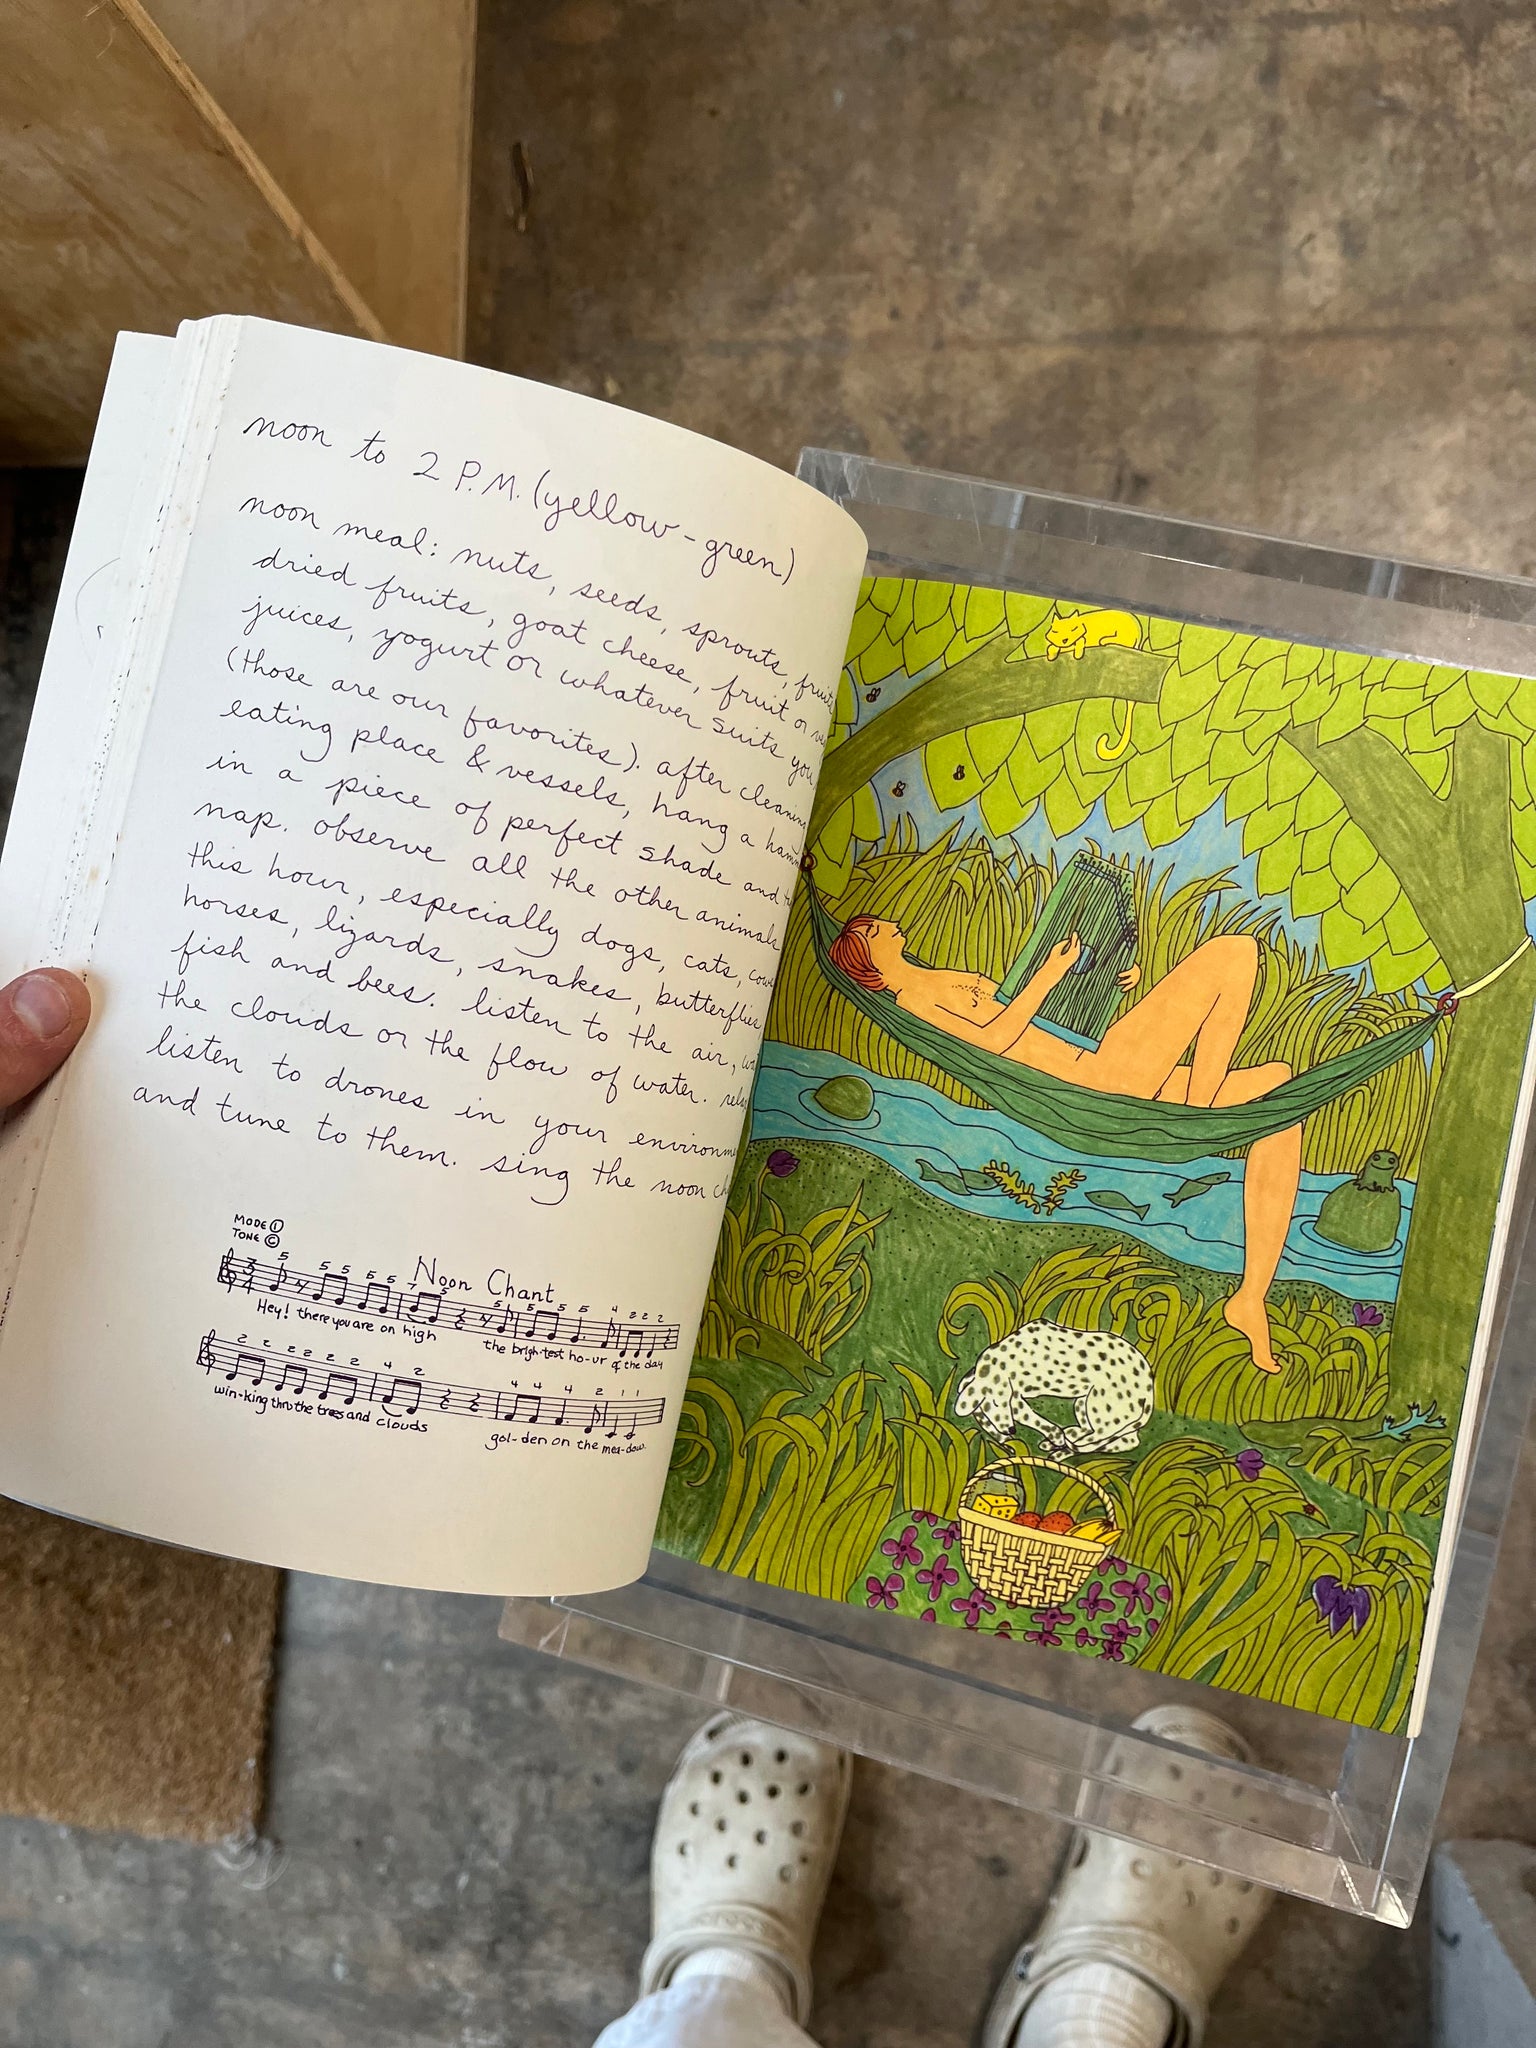 noon to 2 P.M. (yellow-green)
noon meal: nuts, seeds, sprouts, fruits,
dried fruits, goat cheese, fruit or
juices, yogurt or whatever suits you
(those are our favorites). after cleaning
eating place & vessels, hang a
in a piece of perfect shade and
nap. observe all the other animals
this hour, especially dogs, cats, cows
horses, lizards, snakes, butterflies
fish and bees. listen to the air,
the clouds or the flow of water.
listen to drones in your
and tune to them. sing the noon
MODE 1
TONE C
Noon Chant
5 5 5 5 5 7 5 5 5 5 5 4 2 2 2
Hey! there you are on high the brigh-test ho-ur of the day
2 2 2 2 2 2 4 2 4 4 4 2 1 1
win-king thru the trees and clouds gol-den on the mea-dow.